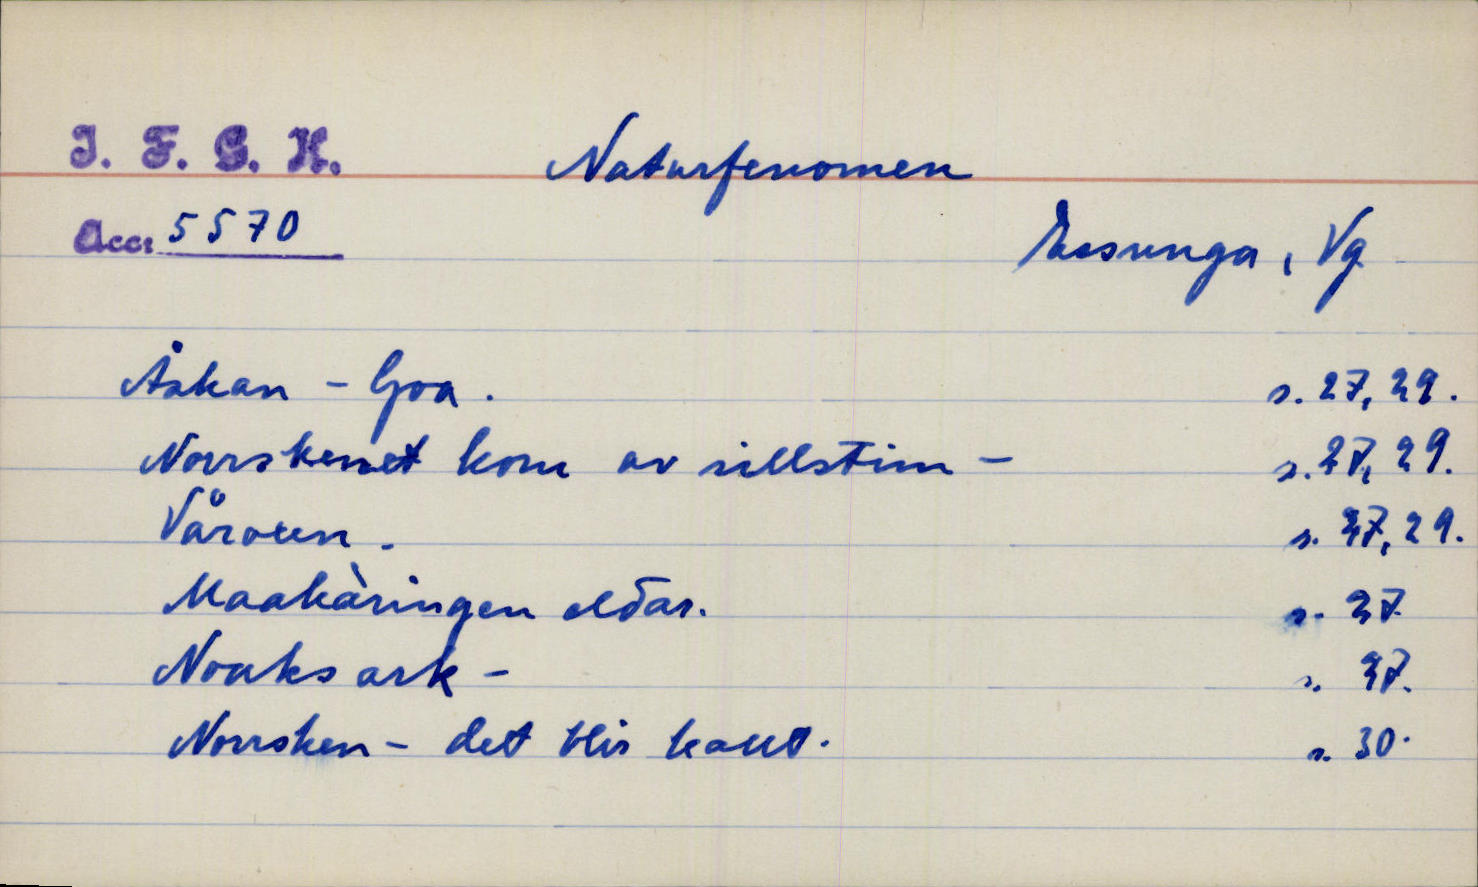 I. F. G. H.
Naturfenomen
Acc: 5570
Essunga, Vg
Åskan - Goa. s. 27, 29.
Norrskenet kom av sillstim - s. 27, 29.
Våroxen. s. 27, 29.
Maakäringen eldar. s. 27
Noaks ark - s. 27.
Norrsken - det blir kallt. s. 30.